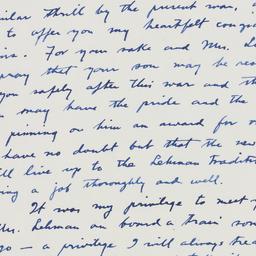 ilar thrill by the present war,
to offer you my heartfelt
For your sake and Mrs.
pray that your son may be
you safely after this war and th
may have the pride and the
pinning on him an award for
have no doubt but that the new
ll live up to the Lehman traditi
ing a job thoroughly and well.
It was my privilege to meet
Mrs. Lehman on board a train som
go — a privilege I will always trea